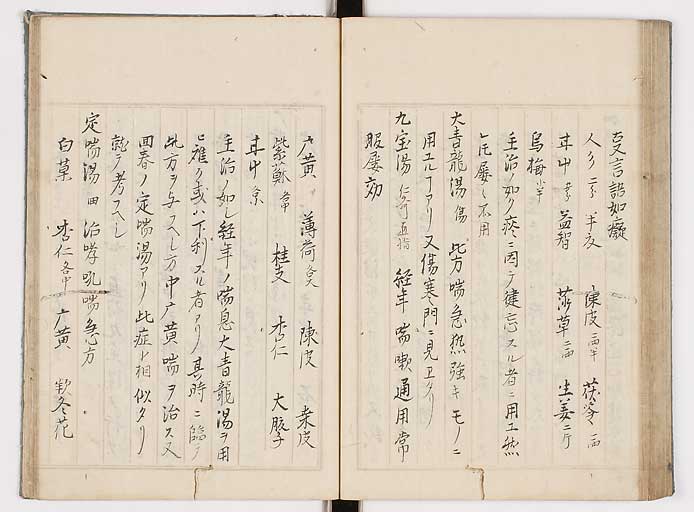 変言語如癡
人参 二字 半夏 陳皮 一両半 茯苓 一両
甘艸 益智 莎草 一両 生姜 二片
烏梅 半
主治ノ如ク痰ニ因テ健忘スル者ニ用エ然
𪜈屡々不用
大青龍湯 傷 此方喘急熱強キモノニ
用エルヿアリ又傷寒門ニ見ユタリ
九宝湯 直指 経年喘嗽通用常
服屡効
广黄 薄荷 陳皮 桑皮
紫蘇 桂支 杏仁 大腹子
甘艸
主治ノ如ク経年ノ喘息大青龍湯ヲ用
ヒ難ク或ハ下利スル者アリ其時ニ臨テ
此方ヲ与スヘシ方中广黄喘ヲ治ス又
回春ノ定喘湯アリ此症ト相似タリ
就テ考スヘシ
定喘湯 回 治哮吼喘急方
白菓 杏仁 各 广黄 欵冬花